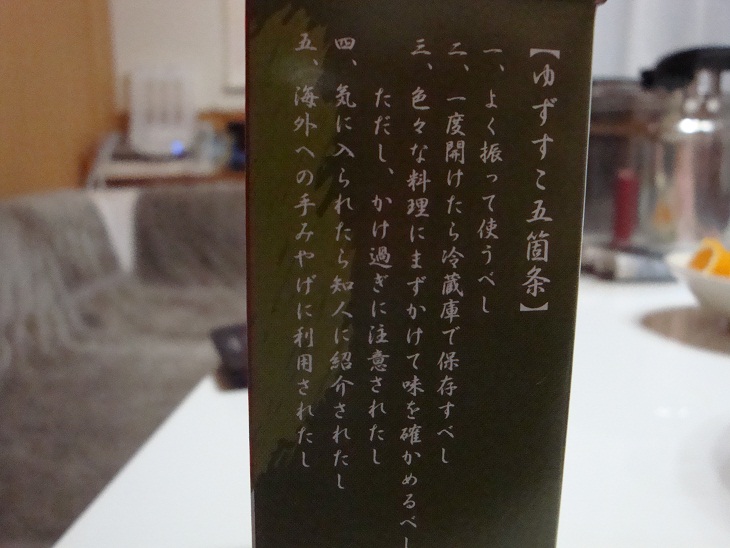 【ゆずすこ五箇条】
一、よく振って使うべし
二、一度開けたら冷蔵庫で保存すべし
三、色々な料理にまずかけて味を確かめるべし
ただし、かけ過ぎに注意されたし
四、気に入られたら知人に紹介されたし
五、海外への手みやげに利用されたし